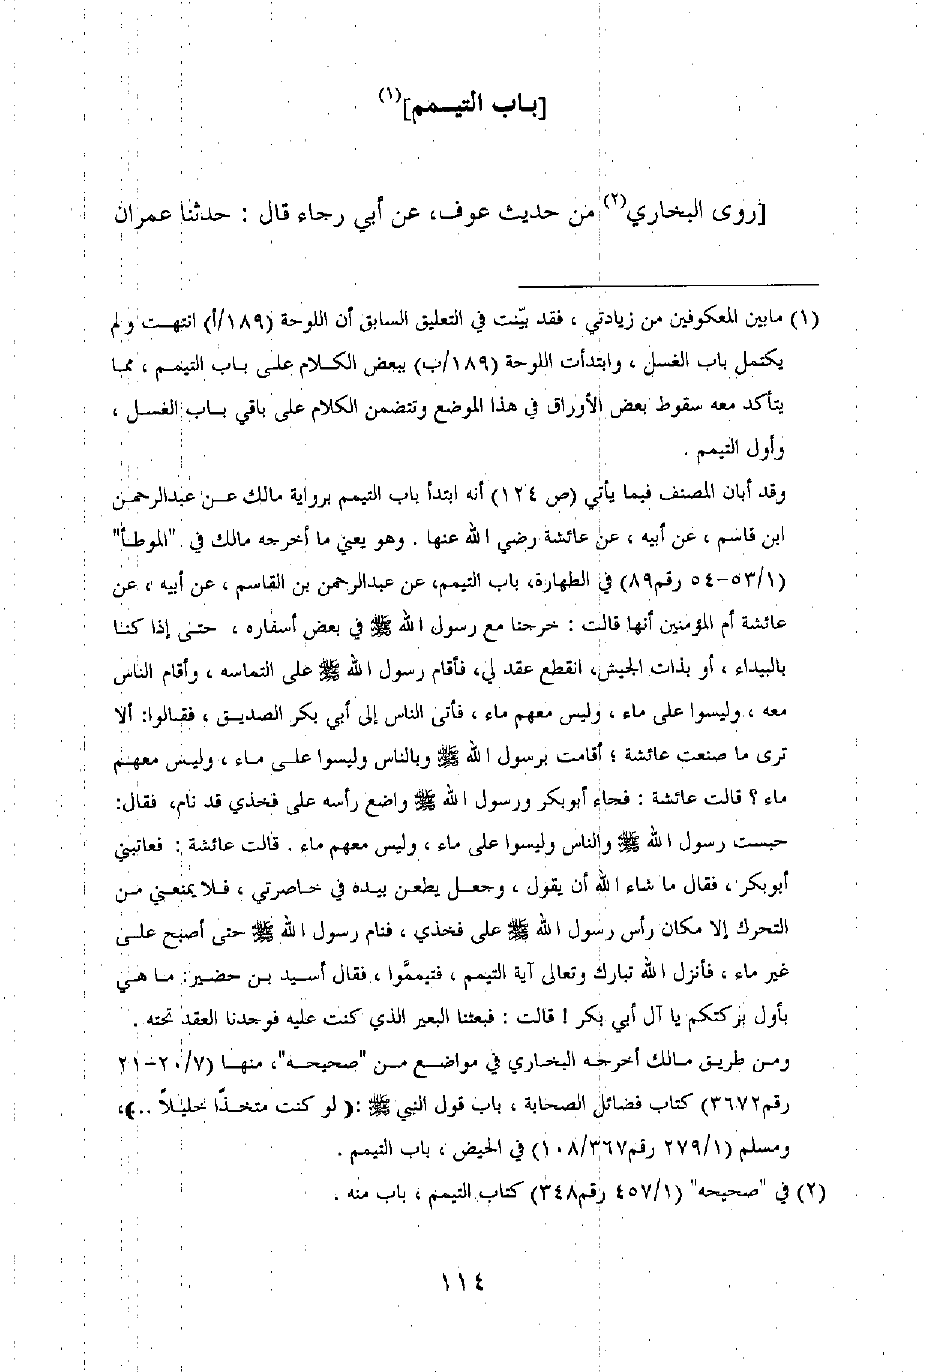 [باب التيمم](١)
[روى البخاري(٢) من حديث عوف، عن أبي رجاء قال : حدثنا عمران
(١) مابين المعكوفين من زيادتي ، فقد بيّنت في التعليق السابق أن اللوحة (١٨٩/أ) انتهت ولم
يكتمل باب الغسل ، وابتدأت اللوحة (١٨٩/ب) ببعض الكلام على باب التيمم ، مما
يتأكد معه سقوط بعض الأوراق في هذا الموضع وتتضمن الكلام على باقي باب الغسل ،
وأول التيمم .
وقد أبان المصنف فيما يأتي (ص ١٢٤) أنه ابتدأ باب التيمم برواية مالك عن عبدالرحمن
ابن قاسم ، عن أبيه ، عن عائشة رضي الله عنها . وهو يعني ما أخرجه مالك في "الموطأ"
(٥٣/١-٥٤ رقم٨٩) في الطهارة، باب التيمم، عن عبدالرحمن بن القاسم ، عن أبيه ، عن
عائشة أم المؤمنين أنها قالت : خرجنا مع رسول الله ﷺ في بعض أسفاره ، حتى إذا كنا
بالبيداء ، أو بذات الجيش، انقطع عقد لي، فأقام رسول الله ﷺ على التماسه ، وأقام الناس
معه ، وليسوا على ماء ، وليس معهم ماء ، فأتى الناس إلى أبي بكر الصديق ، فقالوا: ألا
ترى ما صنعت عائشة ؛ أقامت برسول الله ﷺ وبالناس وليسوا على ماء ، وليس معهم
ماء ؟ قالت عائشة : فجاء أبوبكر ورسول الله ﷺ واضع رأسه على فخذي قد نام، فقال:
حبست رسول الله ﷺ والناس وليسوا على ماء ، وليس معهم ماء . قالت عائشة : فعاتبني
أبوبكر ، فقال ما شاء الله أن يقول ، وجعل يطعن بيده في خاصرتي ، فلا يمنعني من
التحرك إلا مكان رأس رسول الله ﷺ على فخذي ، فنام رسول الله ﷺ حتى أصبح على
غير ماء ، فأنزل الله تبارك وتعالى آية التيمم ، فتيممّوا ، فقال أسيد بن حضير: ما هي
بأول بركتكم يا آل أبي بكر ! قالت : فبعثنا البعير الذي كنت عليه فوجدنا العقد تحته .
ومن طريق مالك أخرجه البخاري في مواضع من "صحيحه"، منها (٢٠/٧-٢١
رقم٣٦٧٢) كتاب فضائل الصحابة ، باب قول النبي ﷺ :( لو كنت متخذًا خليلاً ..)،
ومسلم (٢٧٩/١ رقم١٠٨/٣٦٧) في الحيض ، باب التيمم .
(٢) في "صحيحه" (٤٥٧/١ رقم٣٤٨) كتاب التيمم ، باب منه .
١١٤